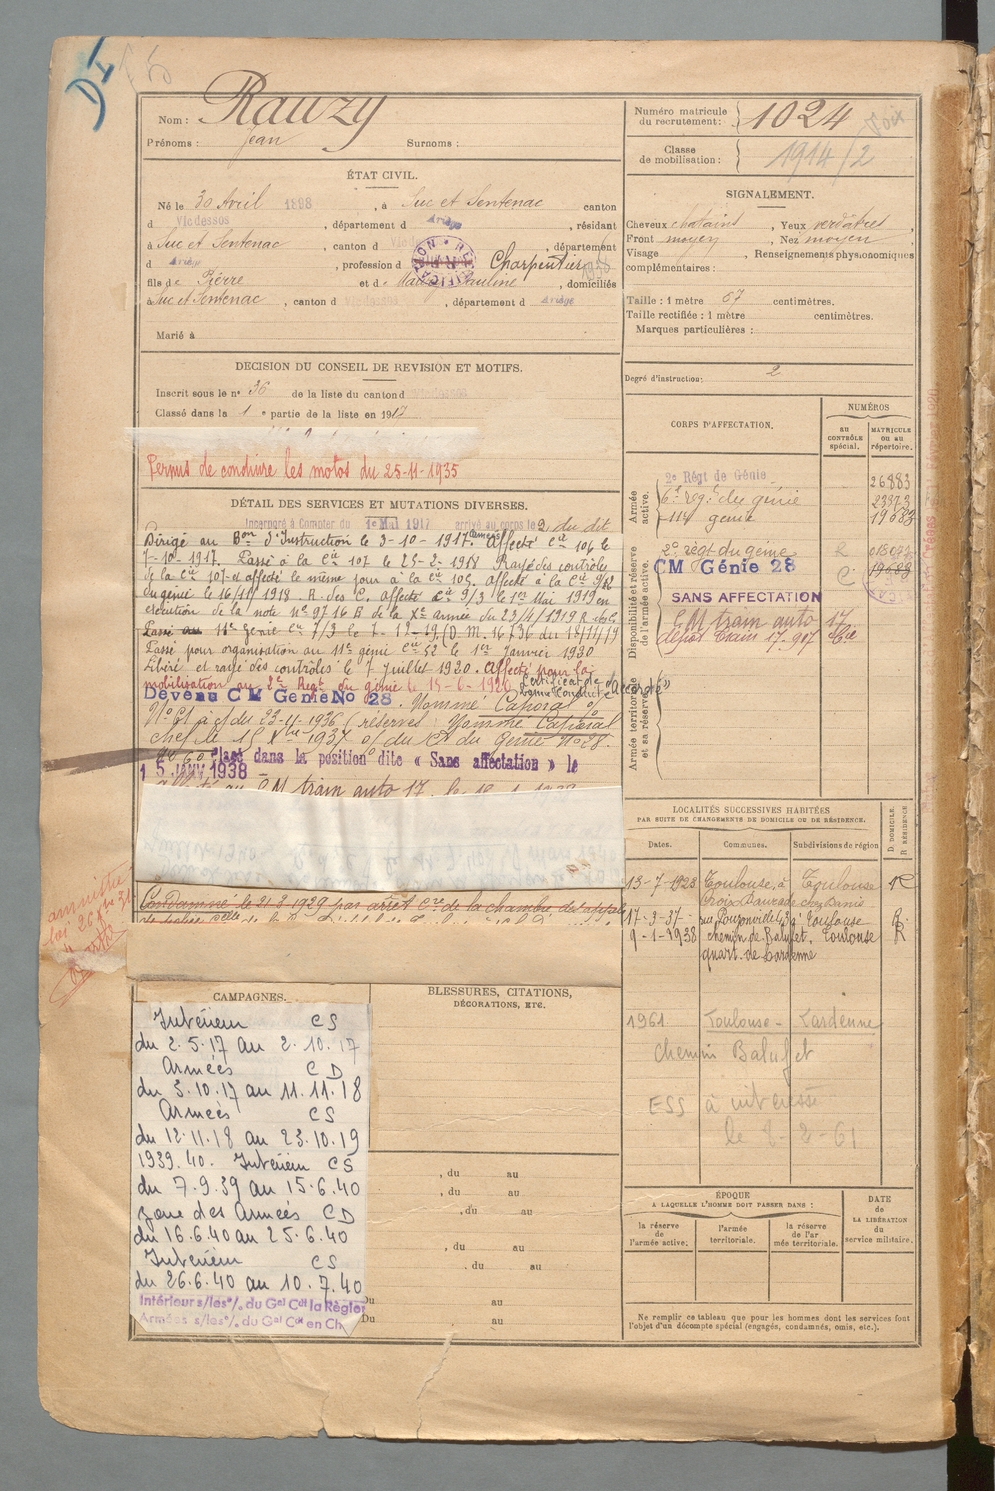 DI
Nom : Rauzy
Prénoms : Jean Surnoms :
Numéro matricule du recrutement : 1024
Classe de mobilisation : 1914/2
ÉTAT CIVIL.
Né le 30 Avril 1898, à Suc et Sentenac canton
d Vicdessos, département d Ariège, résidant
à Suc et Sentenac, canton d , département
d Ariège, profession d Charpentier
fils de Pierre et de Pauline, domiciliés
à Suc et Sentenac, canton d Vicdessos, département d Ariège
Marié à
SIGNALEMENT.
Cheveux chatains, Yeux verdâtres
Front moyen, Nez moyen
Visage , Renseignements physionomiques
complémentaires :
Taille : 1 mètre 67 centimètres.
Taille rectifiée : 1 mètre centimètres.
Marques particulières :
Degré d'instruction : 2
DECISION DU CONSEIL DE REVISION ET MOTIFS.
Inscrit sous le n° 36 de la liste du canton d Vicdessos
Classé dans la 1e partie de la liste en 1917
Permis de conduire les motos du 25-11-1935
DÉTAIL DES SERVICES ET MUTATIONS DIVERSES.
Incorporé à Compter du 1er Mai 1917 arrivé au corps le 2 du dit
Dirigé au Bon d'Instruction le 3-10-1917 Affecté Cie 106 le
7-10-1917. Passé à la Cie 107 le 25-2-1918 Rayé des controles
de la Cie 107 et affecté le même jour à la Cie 105. affecté à la Cie 9/2
du génie le 16/11/1918. R. des C. affecté Cie 9/3 le 1er Mai 1919 en
execution de la note N° 9716 B de la Xe armée du 23/4/1919 R. des C.
Passé au 11e génie Cie 7/3 le 7-11-19 (D. M. 16736 du 12/11/19
Passé pour organisation au 11e génie Cie 52 le 1er Janvier 1920
Libéré et rayé des contrôles le 7 Juillet 1920. Affecté pour la
mobilisation au 2e Regt du génie le 15-6-1926 Certificat de
Devenu C M Génie No 28. Nommé Caporal o/
N° 61 du 23-4-1936 (réserves) Nommé Caporal
chef le 15 Xbre 1937 o/ du Ct du Génie N° 28.
N° 60 Placé dans la position dite « Sans affectation » le
15 JANV 1938
Affecté au CM train auto 17 le
Condamné le 21-3-1929 par arrêt Cre de la chambre des appels
amnistie
loi 26 Xbre 31
CORPS D'AFFECTATION.
NUMÉROS
AU CONTRÔLE SPÉCIAL.
MATRICULE OU AU RÉPERTOIRE.
Armée active.
2e Régt de Génie 26883
6e reg.t des génie
11e génie 19683
Disponibilité et réserve de l'armée active.
2e régt du génie R
CM Génie 28 C 19683
SANS AFFECTATION
CM train auto 17
dépôt train 17-907
Armée territoriale et sa réserve.
LOCALITÉS SUCCESSIVES HABITÉES
PAR SUITE DE CHANGEMENTS DE DOMICILE OU DE RÉSIDENCE.
Dates. Communes. Subdivisions de région
D. DOMICILE. R. RÉSIDENCE
13-7-1928 Toulouse, à Toulouse R
Croix Daurade chez Danis
17-3-37 rue Pouzonville 43 à Toulouse R
9-1-1938 chemin de Balufet, Toulouse R
quart. de Lardenne
1961 Toulouse - Lardenne
Chemin Balufet
ESS à intéressé
le 8-2-61
CAMPAGNES.
Intérieur CS
du 2.5.17 au 2.10.17
Armées CD
du 3.10.17 au 11.11.18
Armées CS
du 12.11.18 au 23.10.19
1939.40. Intérieur CS
du 7.9.39 au 15.6.40
Zone des Armées CD
du 16.6.40 au 25.6.40
Intérieur CS
du 26.6.40 au 10.7.40
Intérieur s/les °/. du Gal Cdt la Région
Armées s/les °/. du Gal Ct en Ch
BLESSURES, CITATIONS,
DÉCORATIONS, ETC.
, du au
, du au
, du au
, du au
, du au
Du au
Du au
ÉPOQUE
A LAQUELLE L'HOMME DOIT PASSER DANS :
la réserve de l'armée active;
l'armée territoriale.
la réserve de l'armée territoriale.
DATE de LA LIBÉRATION du service militaire.
Ne remplir ce tableau que pour les hommes dont les services font
l'objet d'un décompte spécial (engagés, condamnés, omis, etc.).